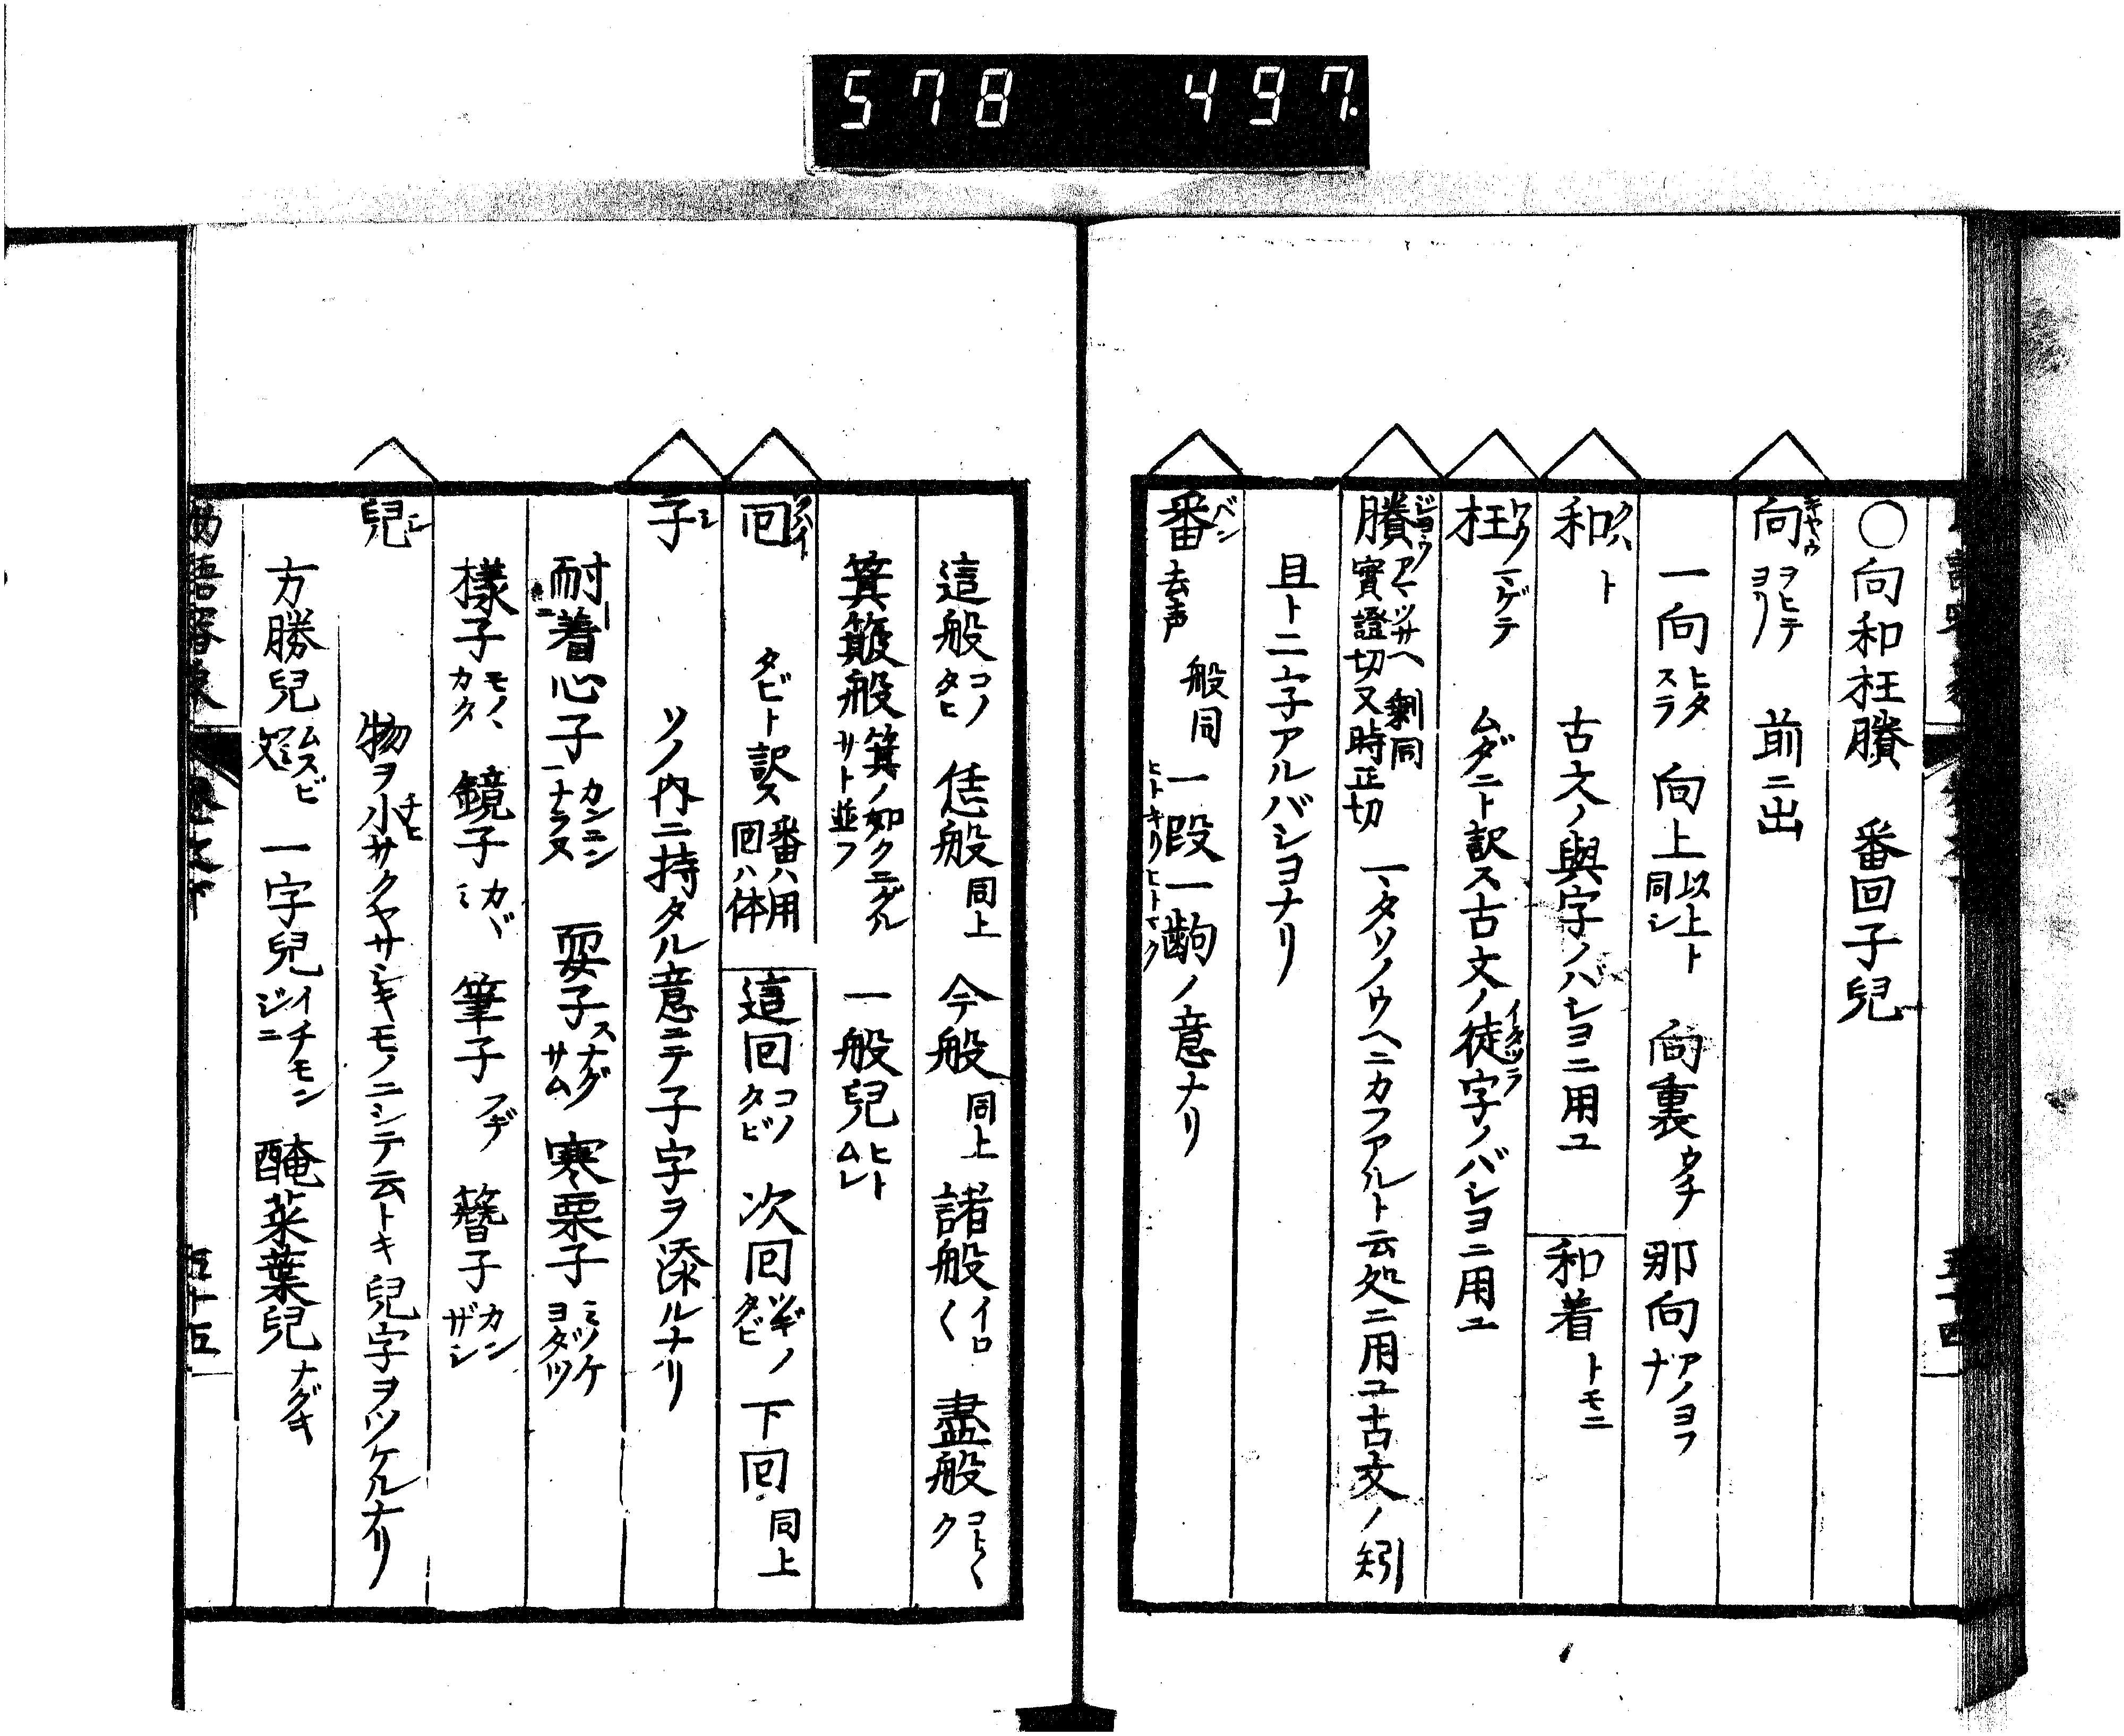 578 497.
○向和枉賸 番回子兒
向キヤウ ヲヒテ ヨリ 前ニ出
一向ヒタスラ 向上以上ト同シ 向裏ウチ 那向アノヨフナ
和 ト 古文ノ與字ノバシヨニ用ユ 和着トモニ
枉ワウ マゲテ ムダニト訳ス古文ノ徒イタヅラ字ノバシヨニ用ユ
賸ジヨウ アマツサヘ 剰同 實證切又時正切 一タソノウヘニカフアルト云処ニ用ユ古文ノ矧
且ト二字アルバシヨナリ
番バン 去声 般同 一段一齣ノ意ナリ ヒトキリヒトマク
這般コノタヒ 恁般同上 今般同上 諸般イロ〱 盡般コト〱ク
箕簸般箕ノ如クニグルサト並フ 一般兒ヒトムレ
回クハイ タビト訳ス 番ハ用回ハ体 這回コノタビ 次回ツギノタビ 下回同上
子シ ソノ内ニ持タル意ニテ子字ヲ添ルナリ
耐着心子カンニンナラヌ 耍子スナグサム 寒栗子ミノケヨダツ
樣子モノヽカタ 鏡子カヾミ 筆子フデ 簪子カンザシ
兒シ 物ヲ小チヒサクヤサシキモノニシテ云トキ兒字ヲツケルナリ
方勝兒ムスビ文 一字兒イチモンジニ 醃菜葉兒ナグキ
五十五